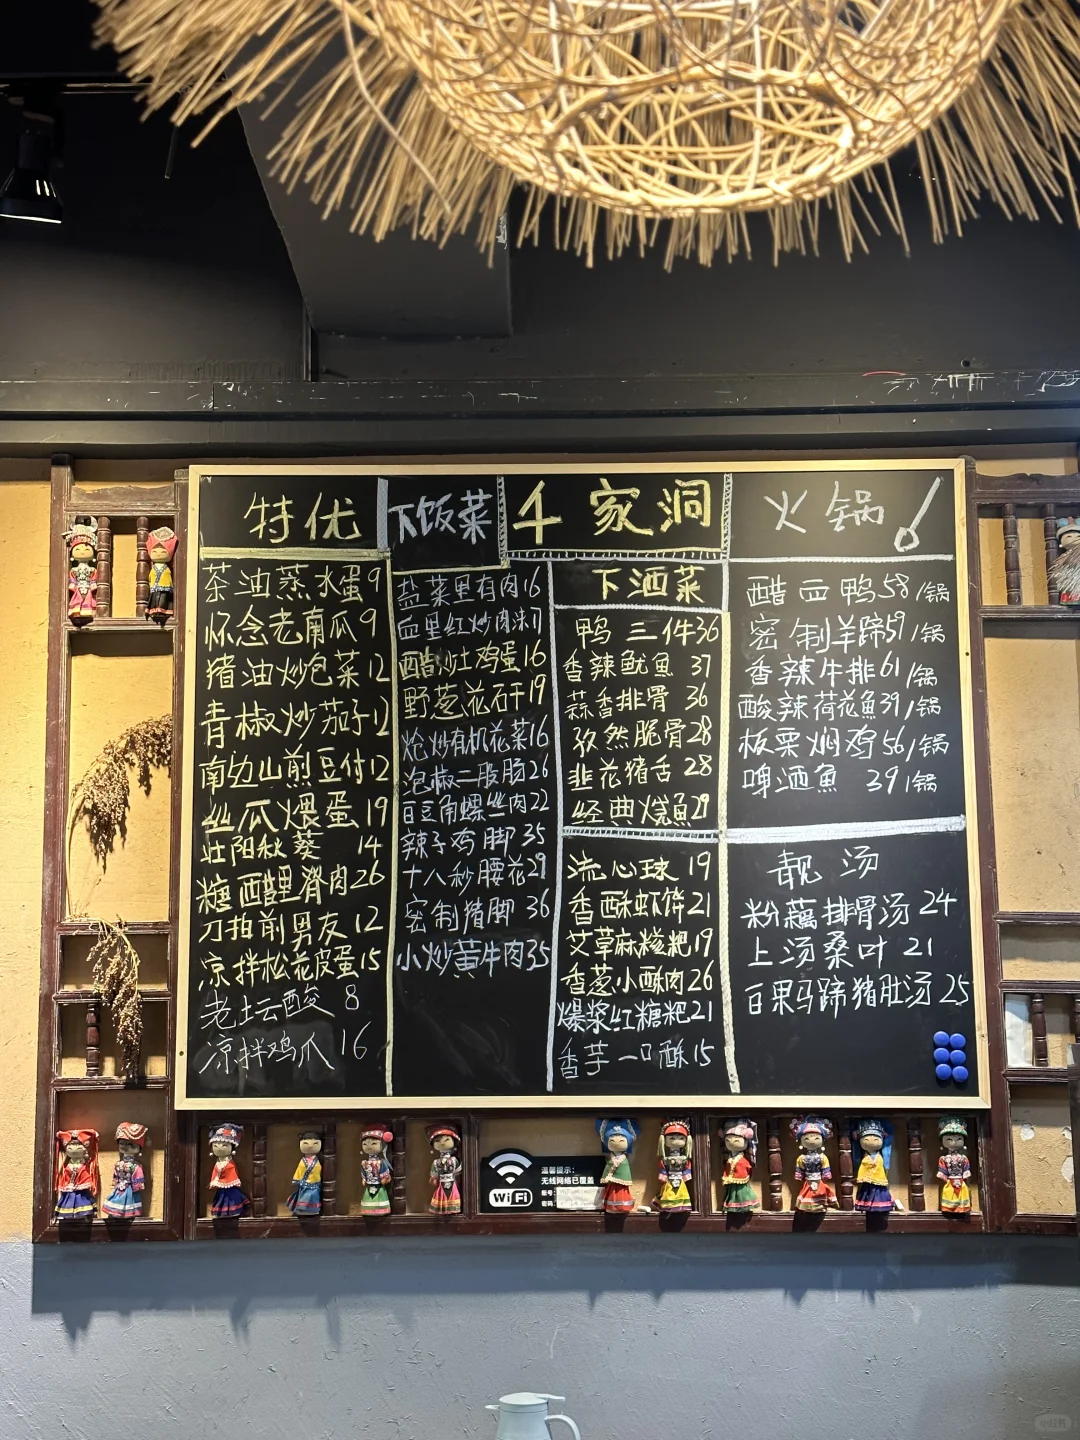 特优
茶油蒸水蛋9
怀念老南瓜9
猪油炒包菜12
青椒炒茄子12
南边山煎豆付12
丝瓜煨蛋19
壮阳秋葵 14
糖醋里脊肉26
刀拍前男友12
凉拌松花皮蛋15
老坛酸 8
凉拌鸡爪 16
下饭菜
盐菜里有肉16
血里红炒肉沫17
醋炒土鸡蛋16
野葱花石干19
炝炒有机花菜16
泡椒二股肠26
豆角螺丝肉22
辣子鸡脚35
十八秒腰花29
密制猪脚36
小炒黄牛肉35
千家洞
下酒菜
鸭三件36
香辣鱿魚 37
蒜香排骨 36
孜然脆骨28
韭花猪舌28
经典烧魚29
流心球 19
香酥虾饼21
艾草麻糍粑19
香葱小酥肉26
爆浆红糖粑21
香芋一口酥15
火锅
醋血鸭58/锅
密制羊蹄59/锅
香辣牛排61/锅
酸辣荷花魚39/锅
板栗焖鸡56/锅
啤酒魚 39/锅
靓汤
粉藕排骨汤24
上汤桑叶 21
白果马蹄猪肚汤25
WiFi
温馨提示:
无线网络已覆盖
账号:
密码:
小红书